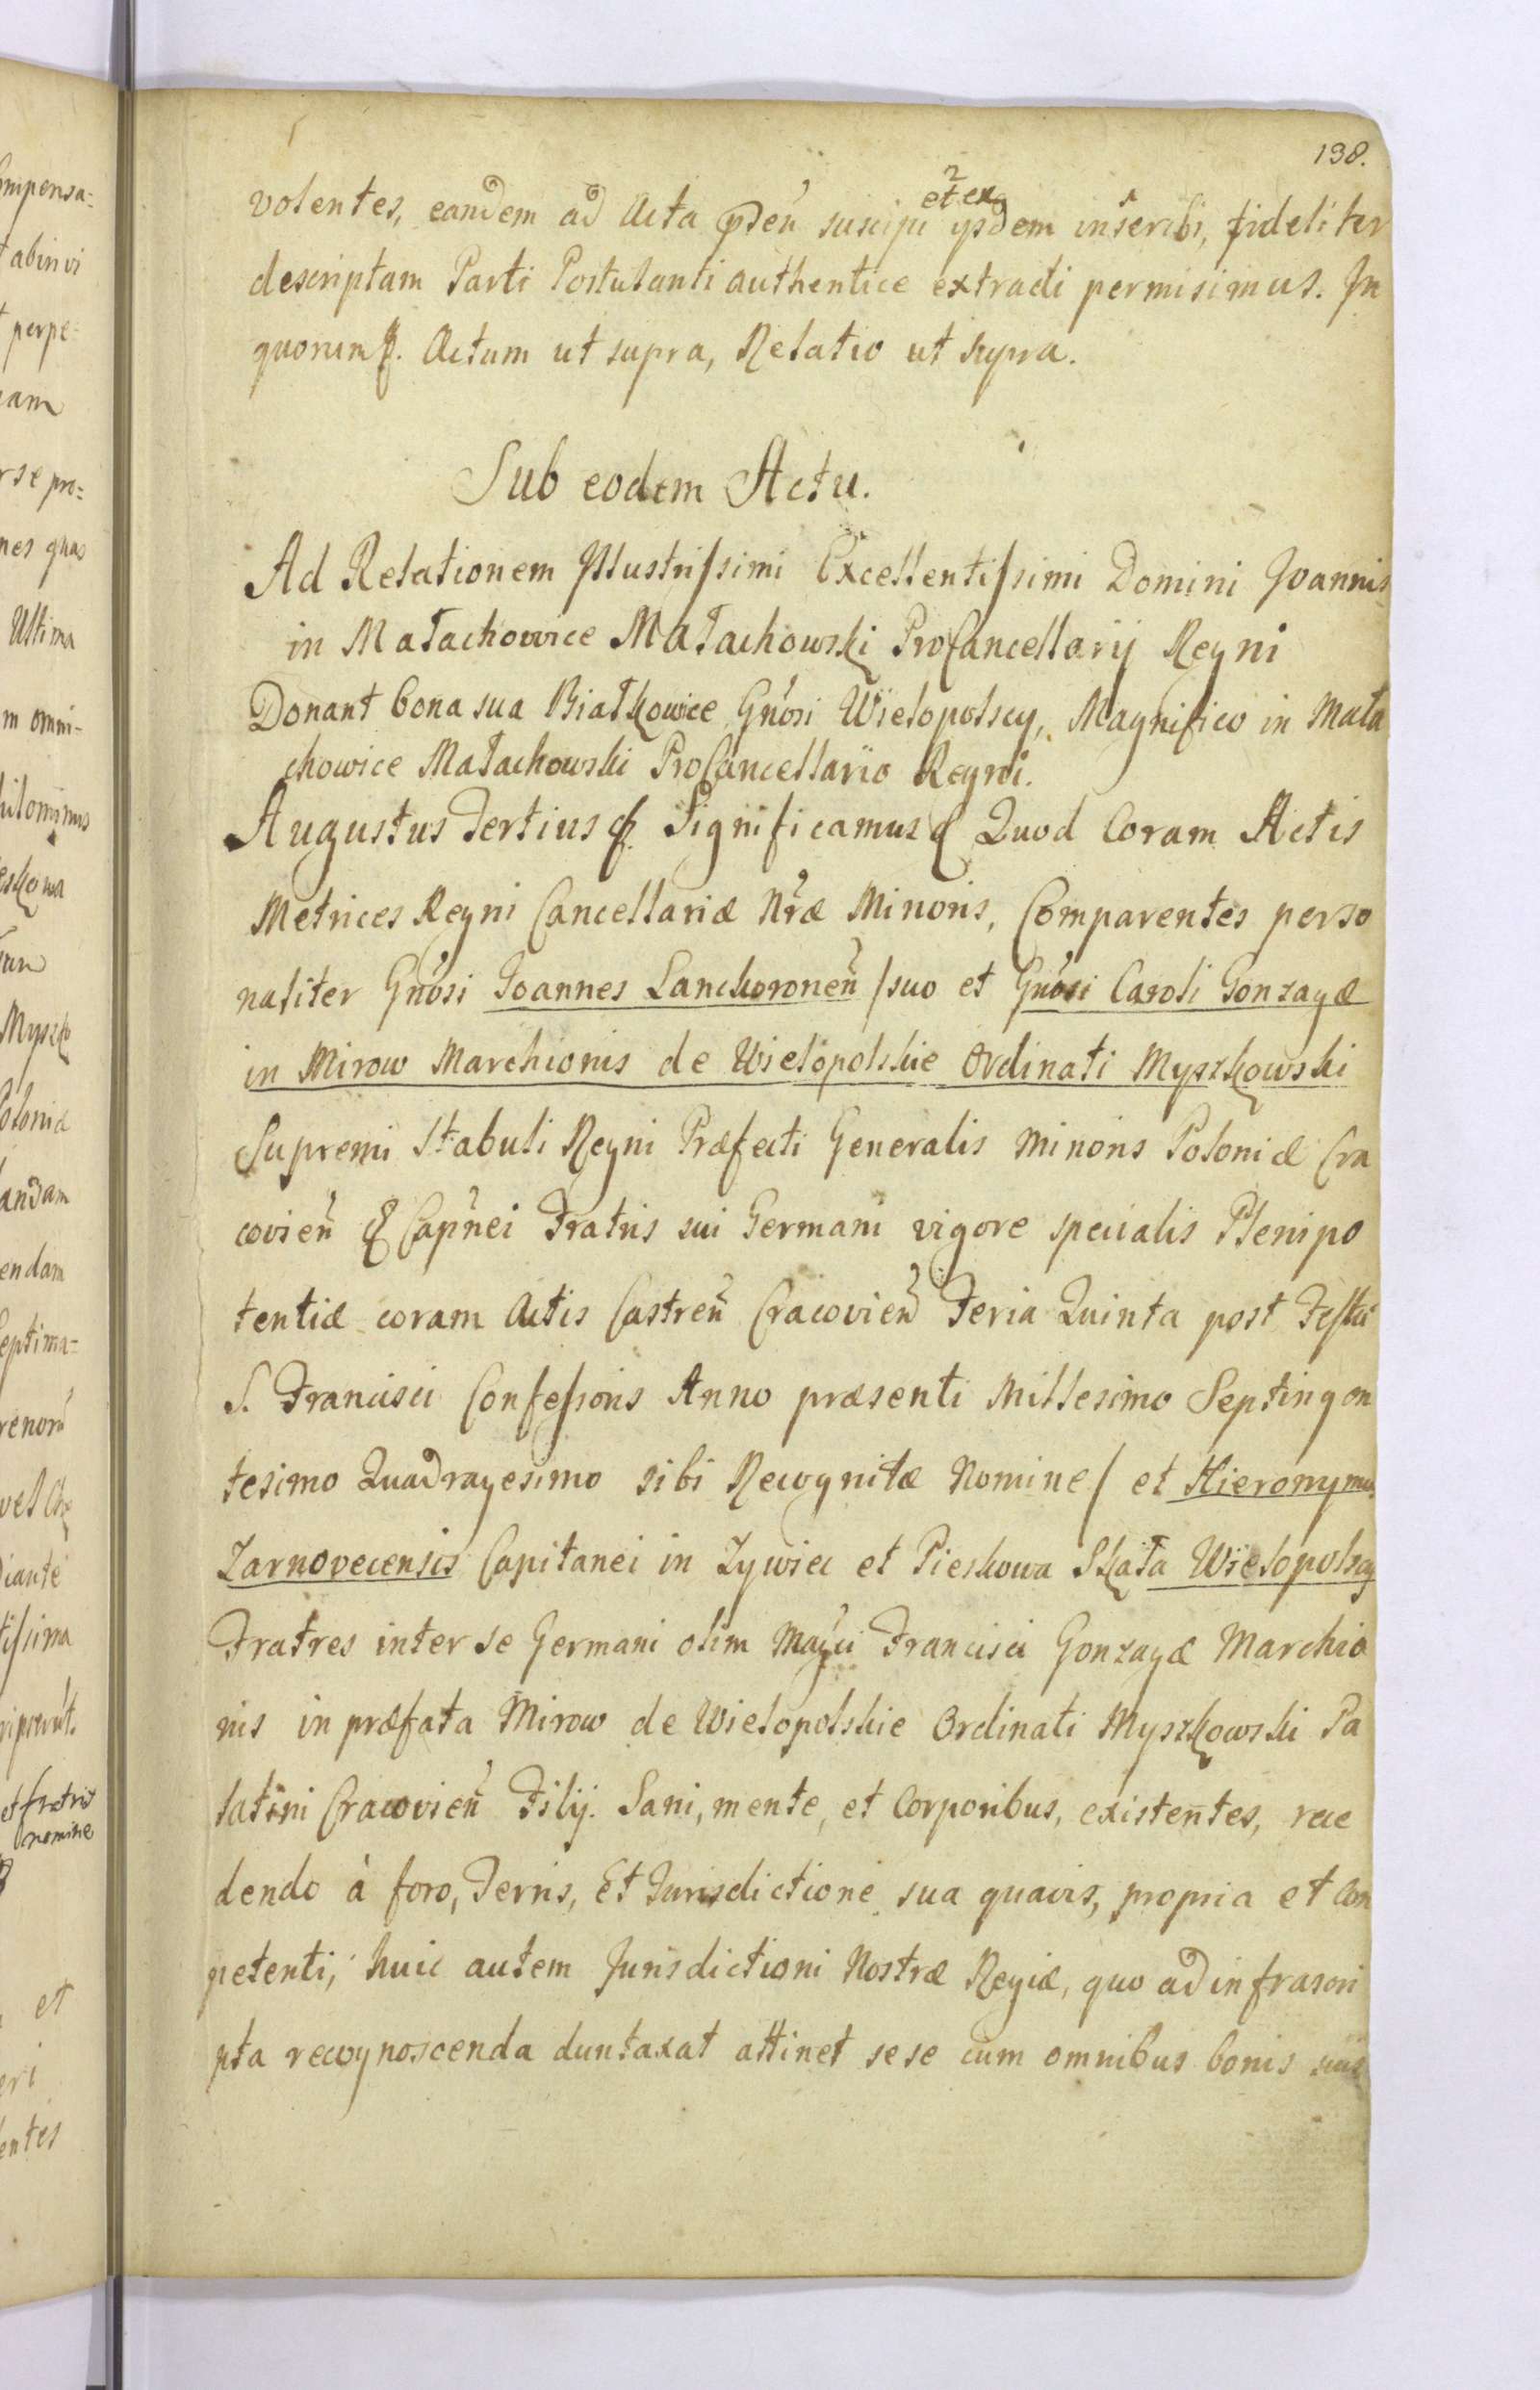 138.
volentes, eandem ad Acta pñseñ suscipi et ex ijsdem inscribi, fideliter
descriptam Parti Postulanti authentice extradi permisimus. In
quorum &. Actum ut supra, Relatio ut supra.
Sub eodem Actu.
Ad Relationem Illustrissimi Excellentissimi Domini Joannis
in Małachowice Małachowski ProCancellarij Regni
Donant bona sua Białkowice Gnosi Wielopolscy, Magnifico in Mała
chowice Małachowski ProCancellario Regni.
Augustus Tertius &. Significamus & Quod Coram Actis
Metrices Regni Cancellariæ Nræ Minoris, Comparentes perso
naliter Gnosi Joannes Lanckoroneñ /suo et Gnosi Caroli Gonzagæ
in Mirow Marchionis de Wielopolskie Ordinati Myszkowski
Supremi Stabuli Regni Præfecti Generalis Minoris Poloniæ Cra
covieñ & Capnei Fratris sui Germani vigore specialis Plenipo
tentiæ coram Actis Castreñ Cracovieñ Feria Quinta post Festu
S. Francisci Confessoris Anno præsenti Millesimo Septingen
tesimo Quadragesimo sibi Recognitæ Nomine/ et Hieronymus
Zarnovecensis Capitanei in Zywiec et Pieskowa Skała Wielopolscy
Fratres inter se Germani olim Magci Francisci Gonzagæ Marchio
nis in præfata Mirow de Wielopolskie Ordinati Myszkowski Pa
latini Cracovieñ Filij. Sani, mente, et Corporibus, existentes, rece
dendo à foro, Terris, Et Jurisdictione sua quavis, propria et Com
petenti, huic autem Jurisdictioni Nostræ Regiæ, quo ad infrascri
pta recognoscenda duntaxat attinet sese cum omnibus bonis suis